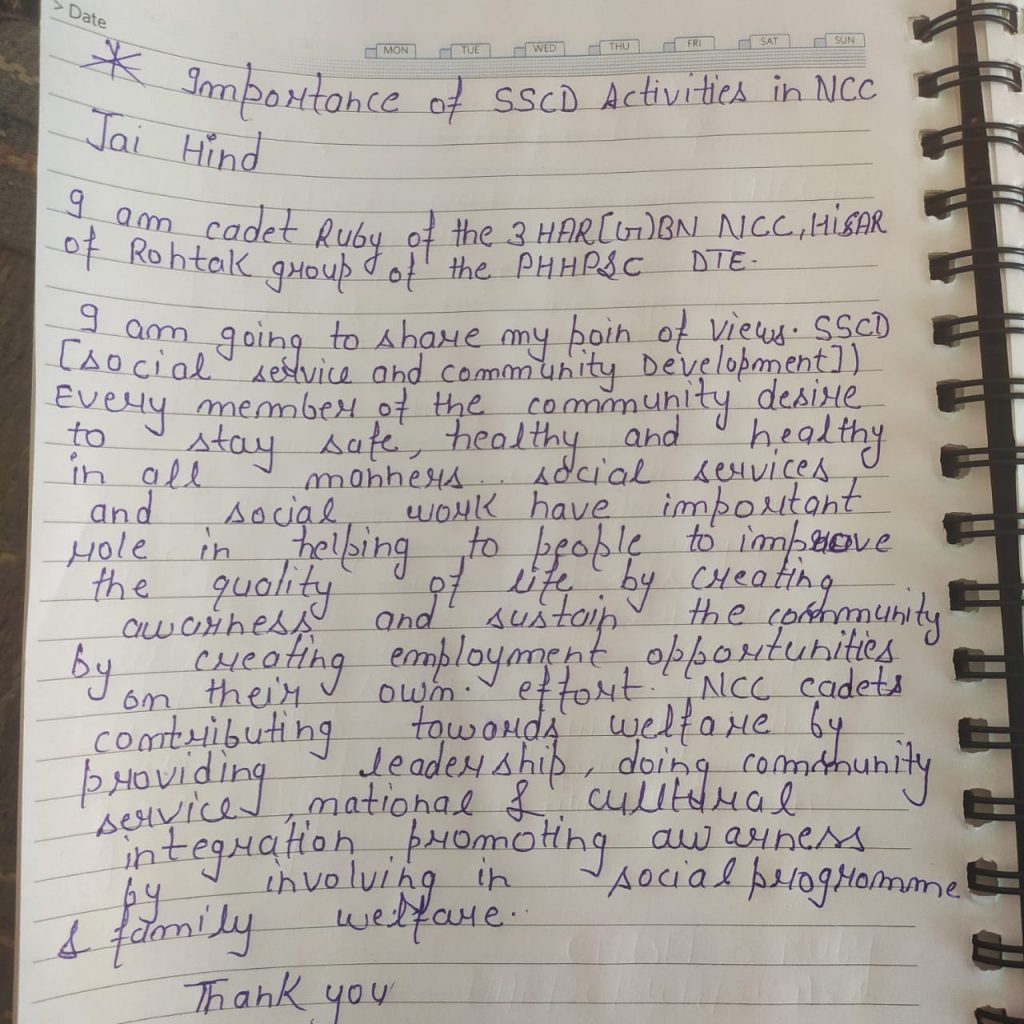 > Date
MON TUE WED THU FRI SAT SUN
* Importance of SSCD Activities in NCC
Jai Hind
I am cadet Ruby of the 3 HAR(G)BN NCC, HISAR
of Rohtak group of the PHHP&C DTE.
I am going to share my poin of views. SSCD
[social service and community Development])
Every member of the community desire
to stay safe, healthy and healthy
in all manners.. social services
and social work have important
role in helping to people to improve
the quality of life by creating
awarness and sustain the community
by creating employment opportunities
on their own. effort. NCC cadets
contributing towards welfare by
providing leadership, doing community
service, national & cultural
integration promoting awarness
by involving in social programme
& family welfare..
Thank you